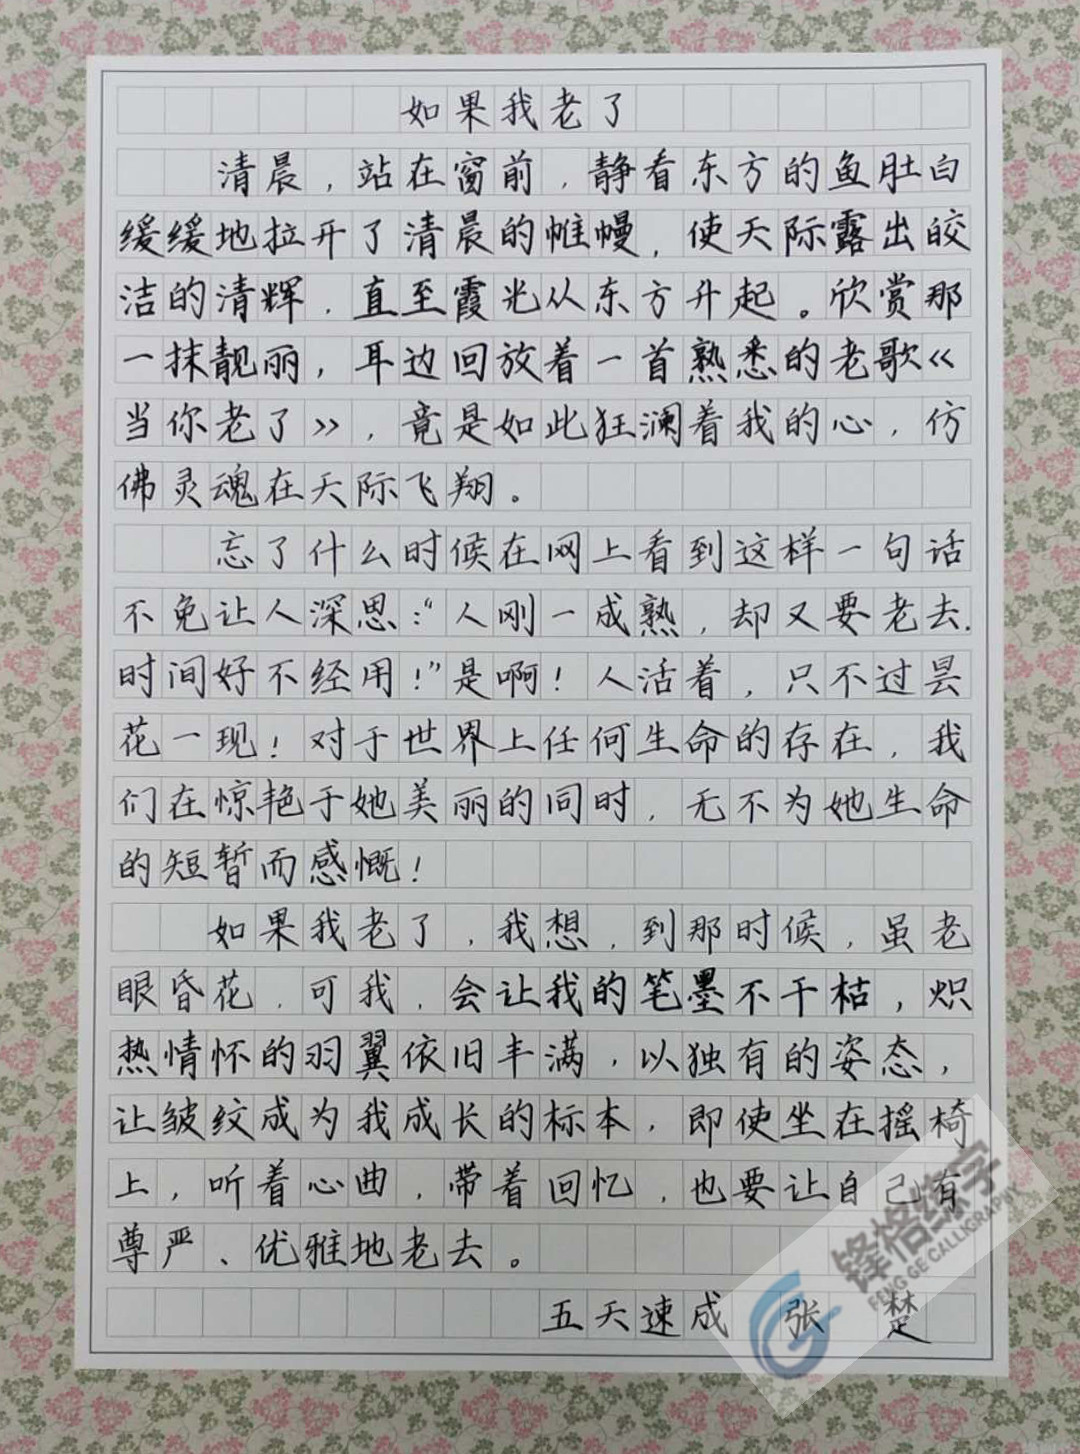 如果我老了
清晨，站在窗前，静看东方的鱼肚白
缓缓地拉开了清晨的帷幔，使天际露出皎
洁的清辉，直至霞光从东方升起。欣赏那
一抹靓丽，耳边回放着一首熟悉的老歌《
当你老了》，竟是如此狂澜着我的心，仿
佛灵魂在天际飞翔。
忘了什么时候在网上看到这样一句话
不免让人深思：“人刚一成熟，却又要老去.
时间好不经用！”是啊！人活着，只不过昙
花一现！对于世界上任何生命的存在，我
们在惊艳于她美丽的同时，无不为她生命
的短暂而感慨！
如果我老了，我想，到那时候，虽老
眼昏花，可我，会让我的笔墨不干枯，炽
热情怀的羽翼依旧丰满，以独有的姿态，
让皱纹成为我成长的标本，即使坐在摇椅
上，听着心曲，带着回忆，也要让自己有
尊严、优雅地老去。
五天速成 张 楚
锋格练字
FENG GE CALLIGRAPHY